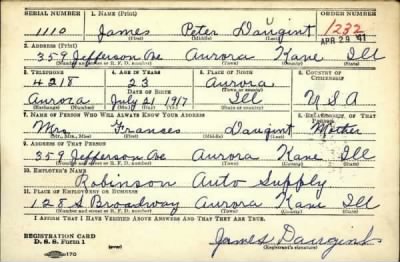 SERIAL NUMBER 1. NAME (Print) ORDER NUMBER
1110 James Peter Daugint 1232
(First) (Middle) (Last) APR 29 '41
2. ADDRESS (Print)
359 Jefferson Ave Aurora Kane Ill
(Number and street or R. F. D. number) (Town) (County) (State)
3. TELEPHONE 4. AGE IN YEARS 5. PLACE OF BIRTH 6. COUNTRY OF CITIZENSHIP
4218 23 Aurora
DATE OF BIRTH (Town or county)
Aurora July 21 1917 Ill U S A
(Exchange) (Number) (Mo.) (Day) (Yr.) (State or country)
7. NAME OF PERSON WHO WILL ALWAYS KNOW YOUR ADDRESS 8. RELATIONSHIP OF THAT PERSON
Mrs Frances Daugint Mother
(Mr., Mrs., Miss) (First) (Middle) (Last)
9. ADDRESS OF THAT PERSON
359 Jefferson Ave Aurora Kane Ill
(Number and street or R. F. D. number) (Town) (County) (State)
10. EMPLOYER'S NAME
Robinson Auto Supply
11. PLACE OF EMPLOYMENT OR BUSINESS
128 S Broadway Aurora Kane Ill
(Number and street or R. F. D. number) (Town) (County) (State)
I AFFIRM THAT I HAVE VERIFIED ABOVE ANSWERS AND THAT THEY ARE TRUE.
REGISTRATION CARD
D. S. S. Form 1 James Daugint
(Registrant's signature)